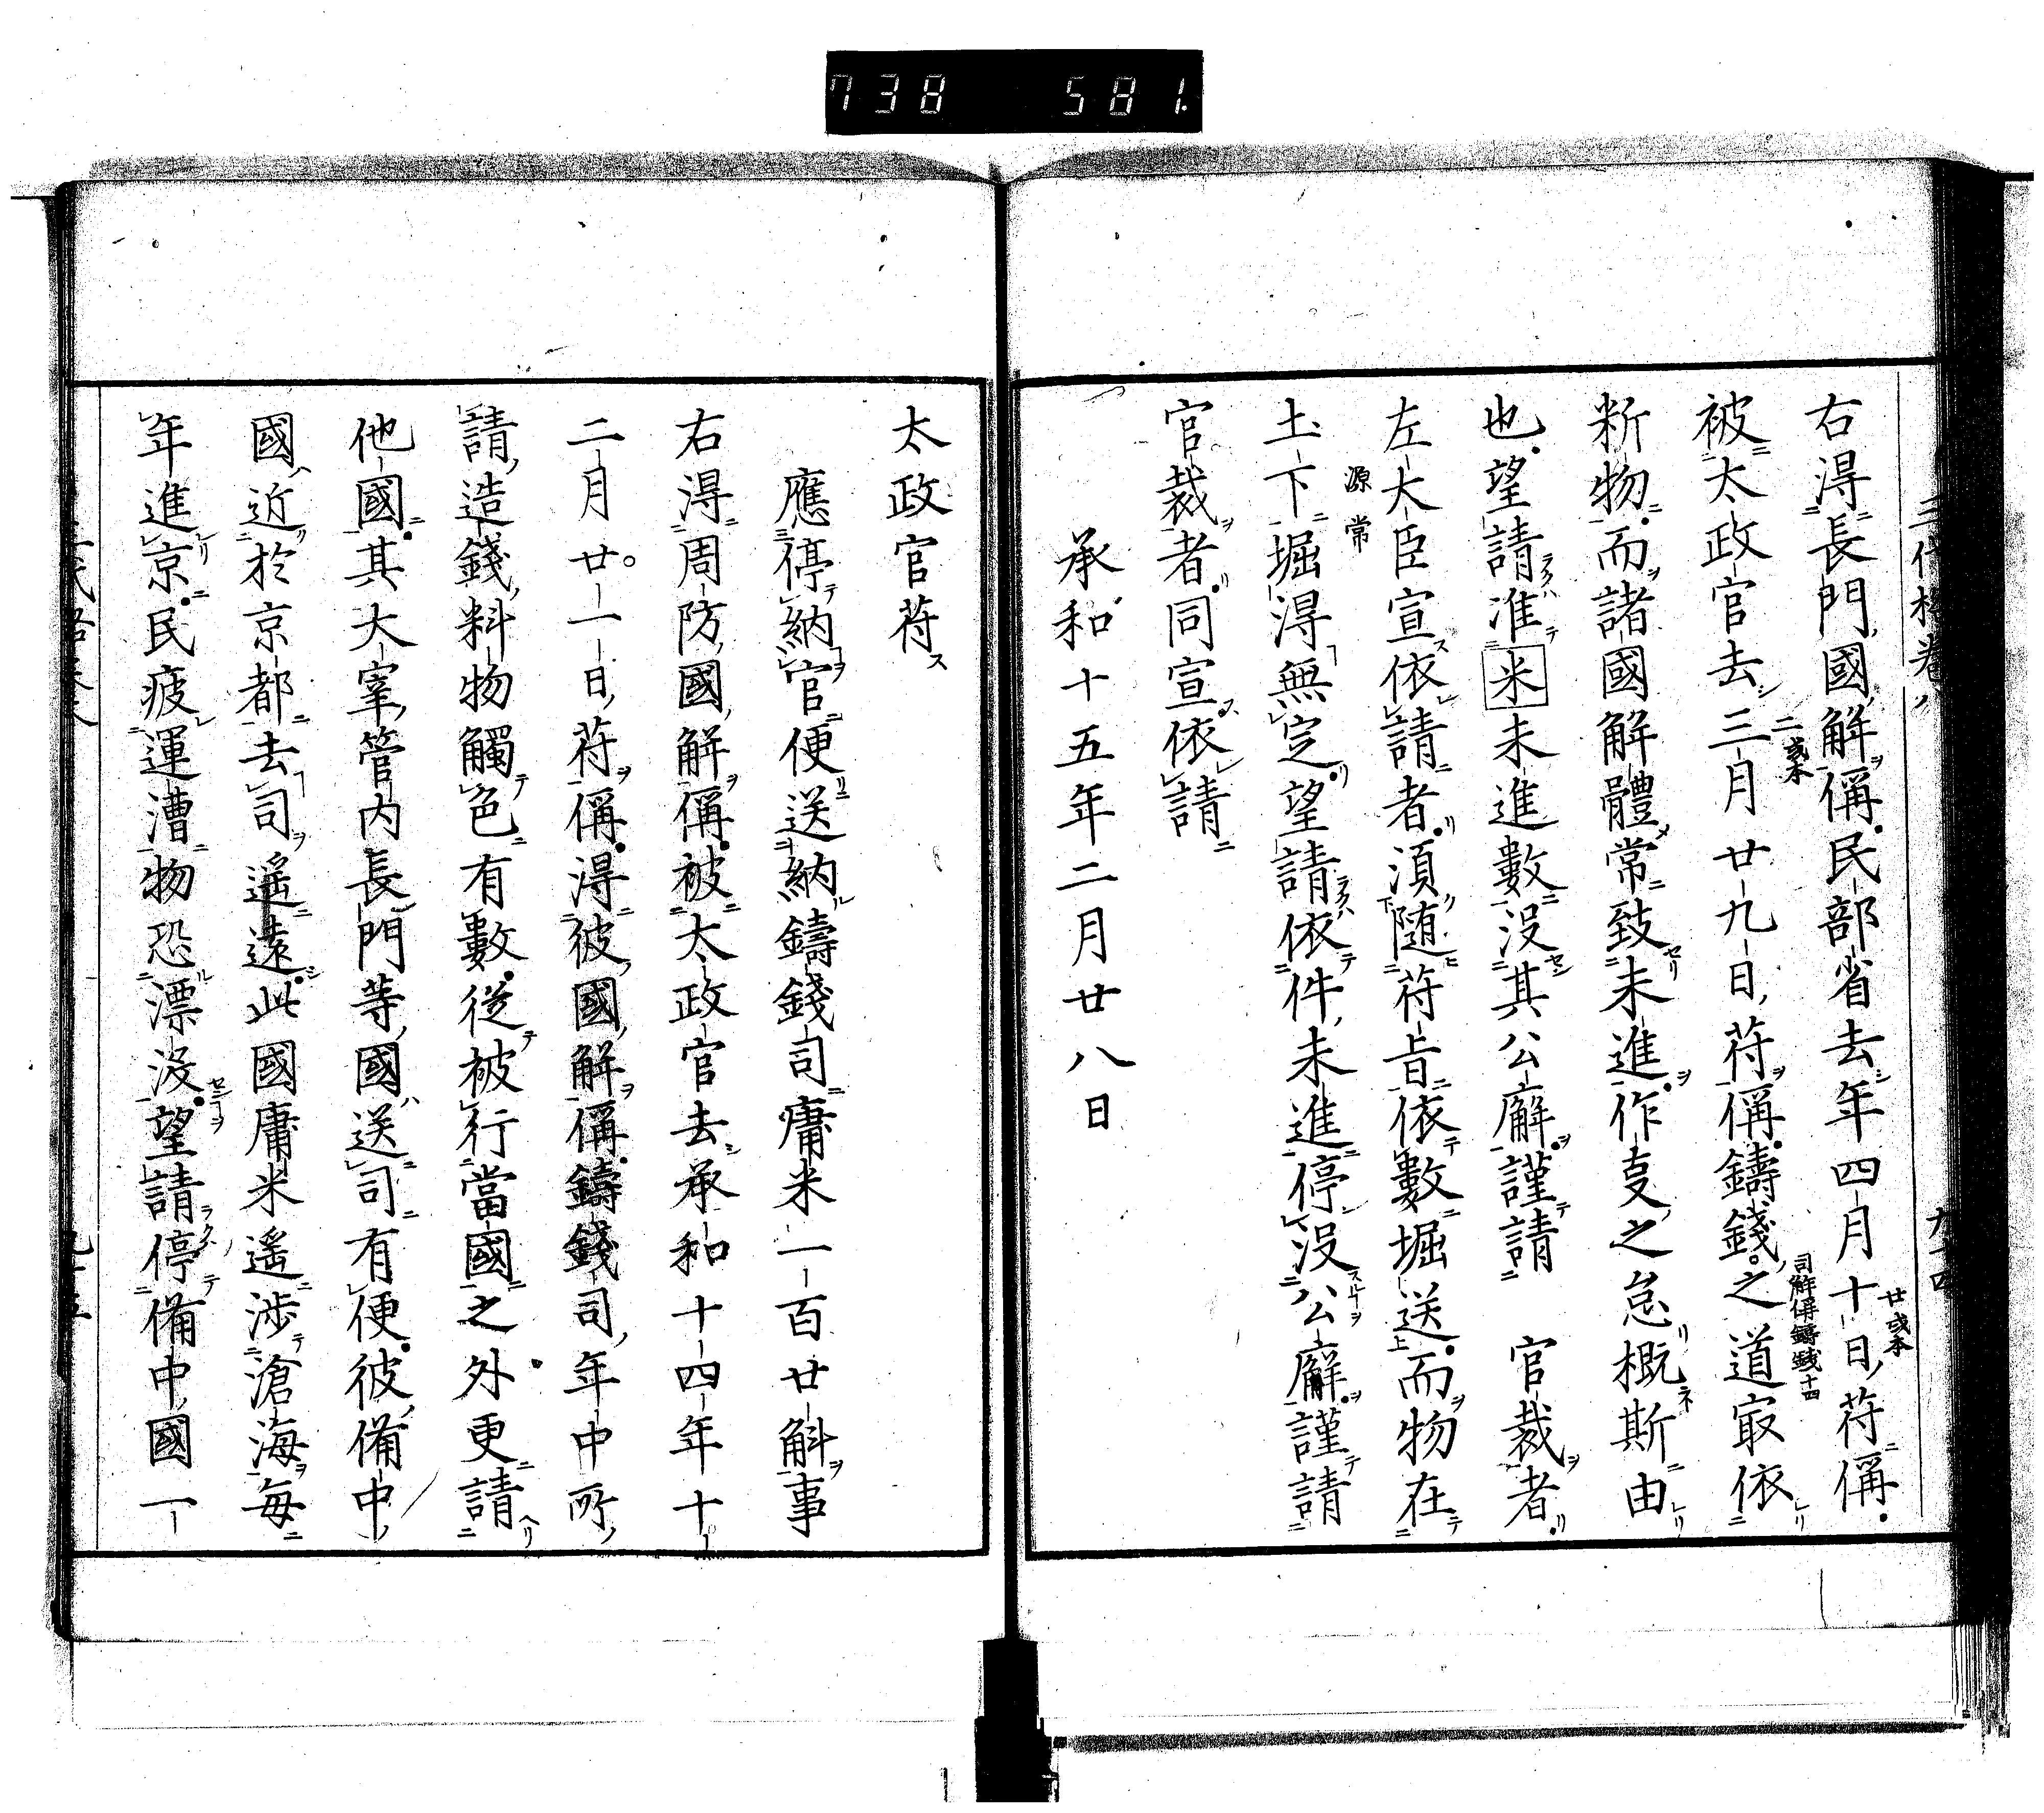 738 581
右淂長門國解稱民部省去年四月十日苻稱
廿或本
被太政官去三月廿九日苻稱鑄錢之道㝡依
二或本
司解偁鑄錢十四
断物而諸國解體常致未進作㕝之怠概斯由
也望請准米未進數没其公廨謹請 官裁者
左大臣宣依請者湏随苻旨依數堀送而物在
源常
土下堀淂無定望請依件未進停没公廨謹請
官裁者同宣依請
承和十五年二月廿八日
太政官苻
應停納官便送納鑄錢司庸米一百廿斛事
右淂周防國解稱被太政官去承和十四年十
二月廿一日苻稱淂彼國解稱鑄錢司年中所
請造錢料物觸色有數從被行當國之外更請
他國其大宰管内長門等國送司有便彼備中
國近於京都去司遥遠此國庸米遥渉滄海毎
年進京民疲運漕物恐漂没望請停備中國一